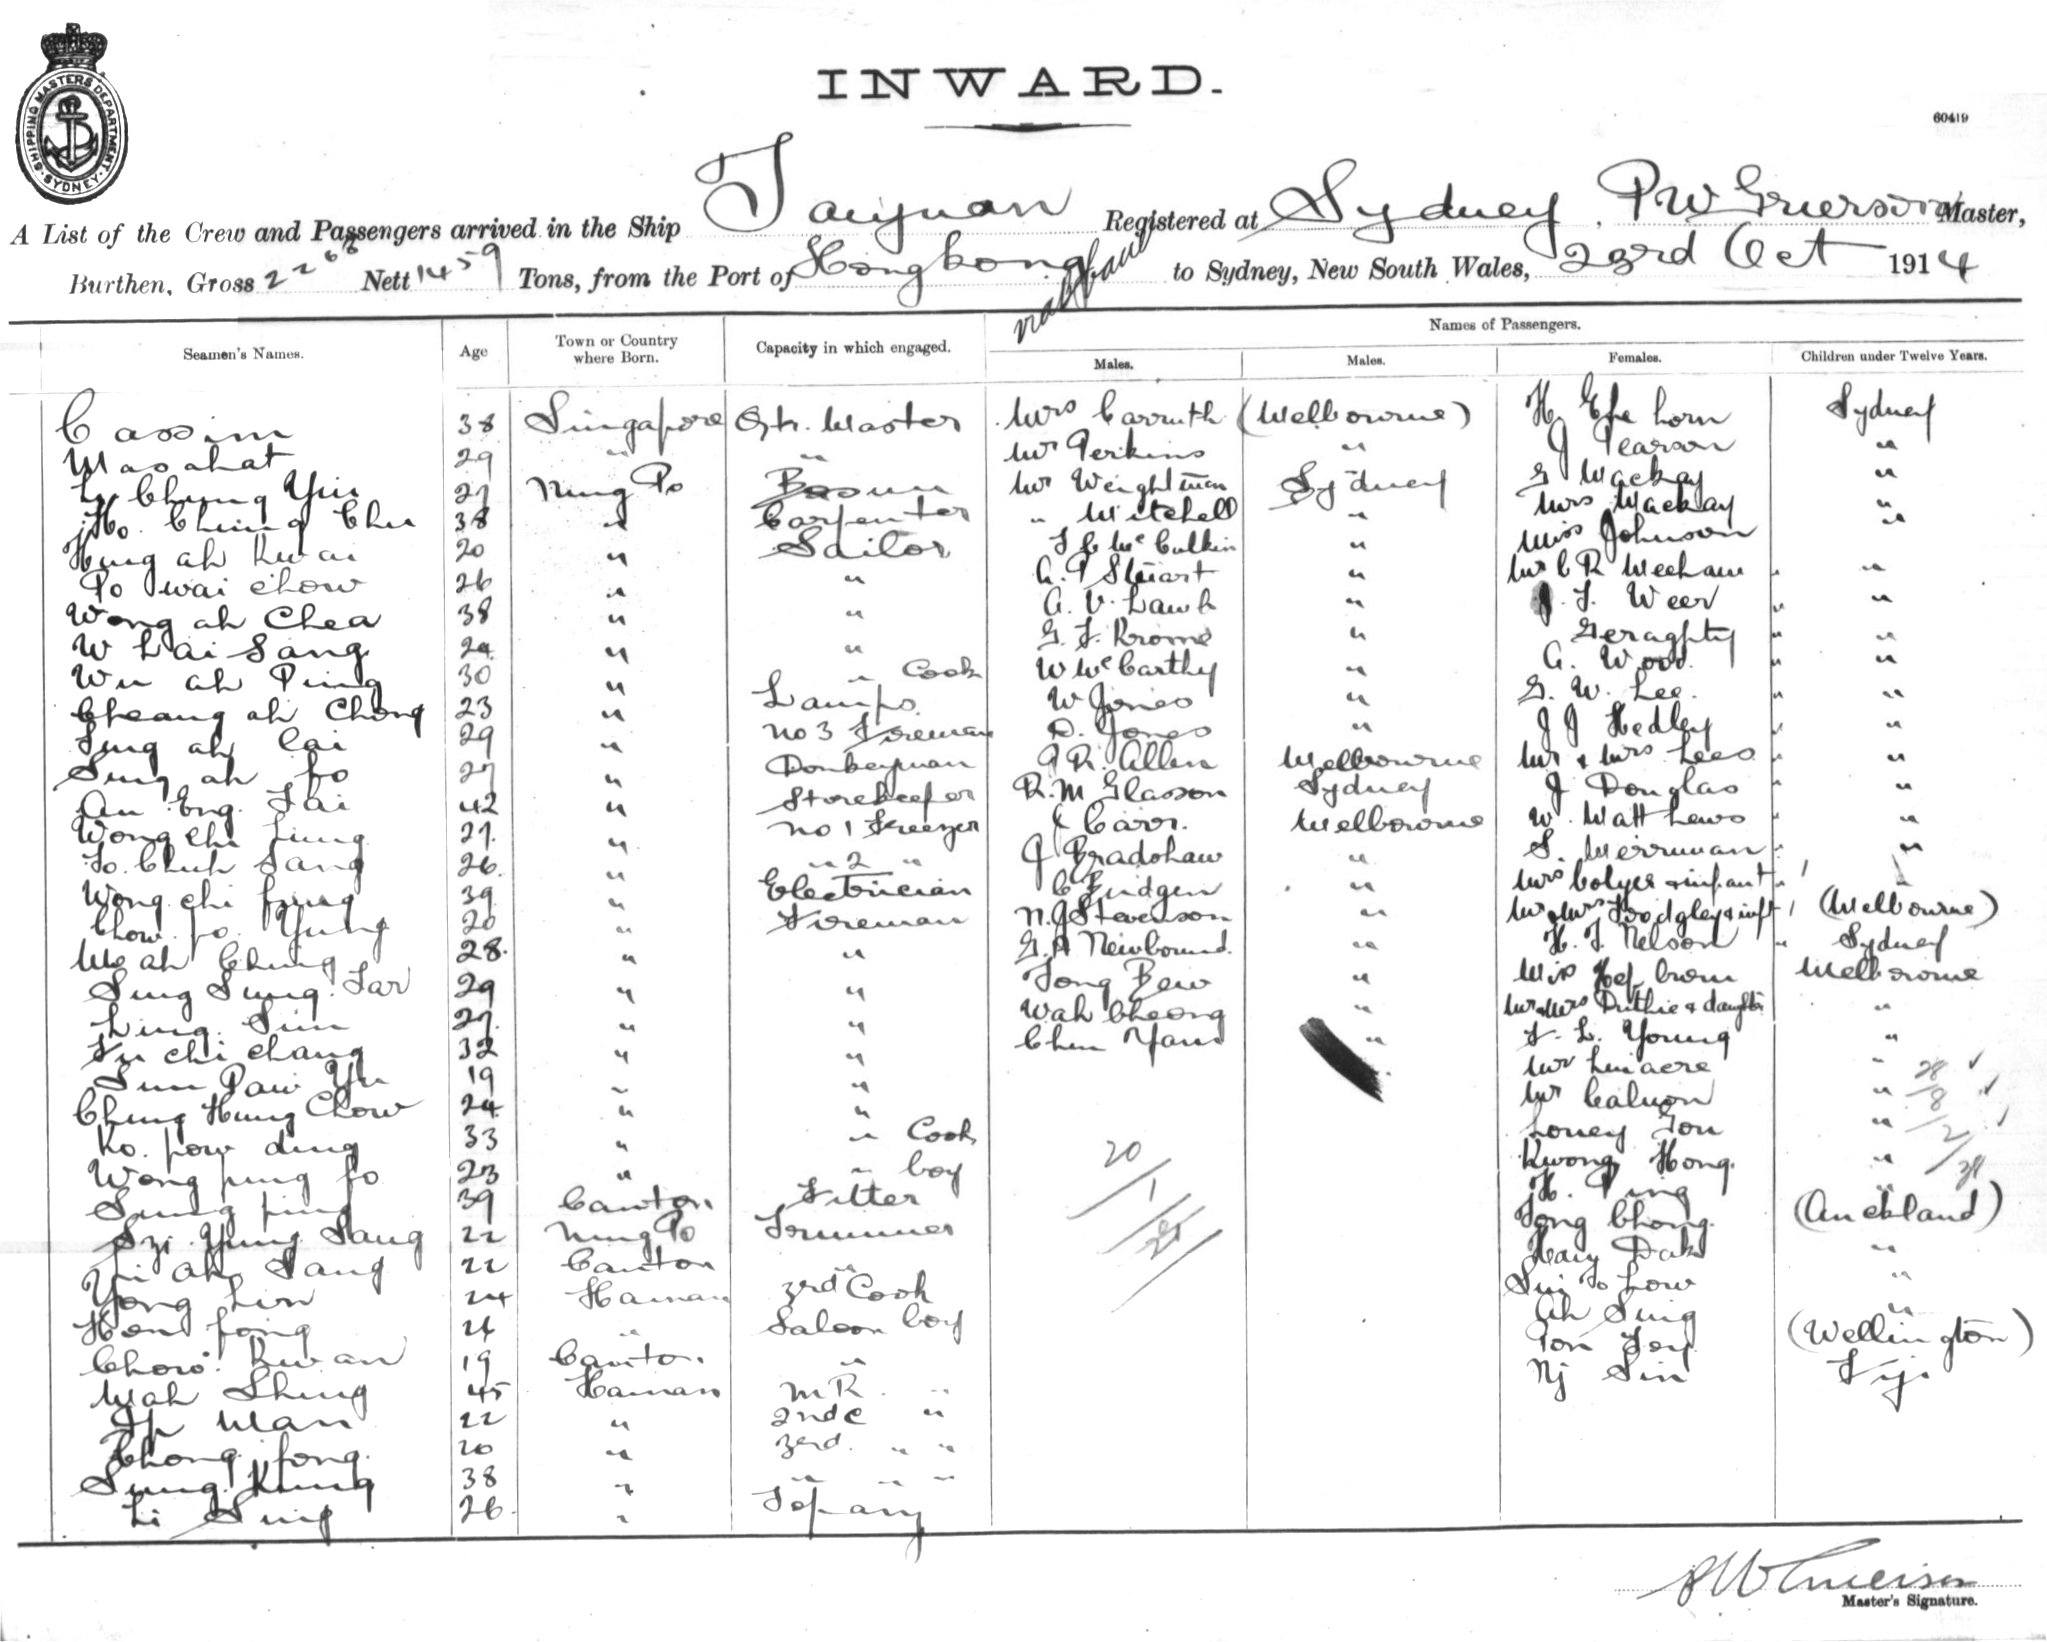 INWARD.
SHIPPING MASTERS DEPARTMENT. SYDNEY.
60419
A List of the Crew and Passengers arrived in the Ship Taiyuan Registered at Sydney, P W Grierson Master,
Burthen, Gross 2268 Nett 1459 Tons, from the Port of Hongkong to Sydney, New South Wales, 23rd Oct 1914
Names of Passengers.
Seamen's Names. Age Town or Country where Born. Capacity in which engaged. Males. Males. Females. Children under Twelve Years.
Cassim 38 Singapore Qtr. Master Mrs Carruth (Melbourne) H. Horn Sydney
Masahat 29 " " Mr Perkins " J Pearson "
Chung Yiu 27 Ning Po Bosun Mr Weightman Sydney G Mackay "
Ho Ching Chu 38 " Carpenter " Mitchell " Mrs Mackay "
Hung ah Kwai 20 " Sailor J C McCulkin " Miss Johnson "
Po wai chow 26 " " A. P Stuart " Mr C R Mecham " "
Wong ah Chea 38 " " A. V. Lawb " J. Weer " "
W Lai Sang 24 " " G. F. Krome " Geraghty " "
Wu ah Ping 30 " " Cook W McCarthy " A. Wood. " "
Cheang ah Chong 23 " Lamps. W Jones " G. W. Lee. " "
Sung ah Cai 29 " No 3 Fireman D. Jones " J J Hedley " "
Sung ah fo 27 " Donkeyman R. Allen Melbourne Mr & Mrs Lees " "
An Eng Tai 42 " Storekeeper R. M Glasson Sydney J Douglas " "
Wong chi 27. " No 1 Freezer J Carr. Melbourne W. Matthews " "
Sang 26. " " 2 " J Bradshaw " S. Merriman " "
Wong chi fung 39 " Electrician C Pridgen " Mrs Colyer & infant " "
Chow fo Yung 20 " Fireman N. J Stevenson " Mr & Mrs & inft (Melbourne)
Mo ah Chung 28. " " G. A Newbound. " H. J. Nelson " Sydney
Sung Sung Far 29 " " Tong Bew " Miss Melbourne
Ling Sun 27. " " Wah Cheong " Mr & Mrs Duthie & daughter "
Fu chi chang 32 " " Chun Yam " F. L. Young "
Sun Paw Yu 19 " " Mr Linacre "
Chung Hung Chow 24 " " Mr Calnon "
Ko. pow ding 33 " " Cook Loney Tou "
Wong pung fo 23 " " boy Kwong Hong. "
Sung ping 39 Canton Fitter H. Ping "
Szi Yung Sang 22 Ning Po Trimmer Tong Chong. (Auckland)
Yi ah Sang 22 Canton " "
Yong Lin 24 Hainan 3rd Cook "
Hon fong 24 " Saloon boy Ah Sing "
Chow Kwan 19 Canton. " (Wellington)
Wah Shing 45 Hainan M R. " Nj Sin Fiji
Ip Wan 22 " 2nd C "
Chong fong. 20 " 3rd. " "
Sung Kung 38 " " " "
Li Sing 26. " Topary
20
1
21
28
8
2
Master's Signature.